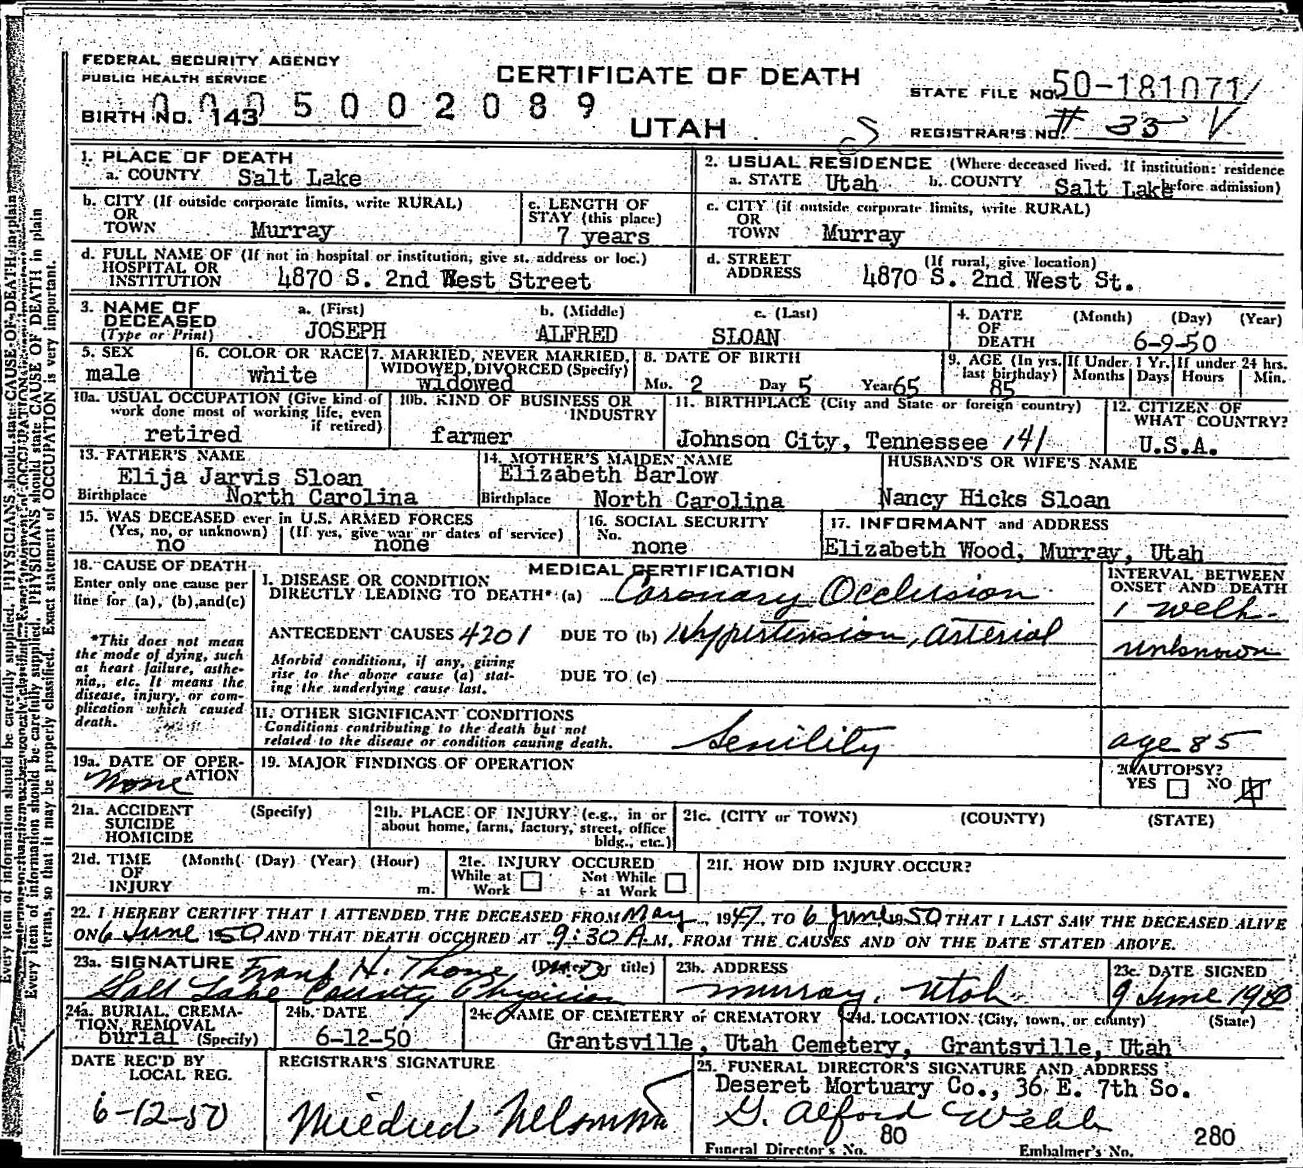 FEDERAL SECURITY AGENCY
PUBLIC HEALTH SERVICE
CERTIFICATE OF DEATH
STATE FILE NO. 50-181071
BIRTH NO. 143
0005002089
UTAH
REGISTRAR'S NO. # 35
1. PLACE OF DEATH
a. COUNTY Salt Lake
2. USUAL RESIDENCE (Where deceased lived. If institution: residence before admission)
a. STATE Utah b. COUNTY Salt Lake
b. CITY (If outside corporate limits, write RURAL)
OR
TOWN Murray
c. LENGTH OF
STAY (this place)
7 years
c. CITY (if outside corporate limits, write RURAL)
OR
TOWN Murray
d. FULL NAME OF (If not in hospital or institution, give st. address or loc.)
HOSPITAL OR
INSTITUTION 4870 S. 2nd West Street
d. STREET (If rural, give location)
ADDRESS 4870 S. 2nd West St.
3. NAME OF DECEASED
(Type or Print)
a. (First) JOSEPH
b. (Middle) ALFRED
c. (Last) SLOAN
4. DATE OF DEATH (Month) (Day) (Year)
6-9-50
5. SEX
male
6. COLOR OR RACE
white
7. MARRIED, NEVER MARRIED,
WIDOWED, DIVORCED (Specify)
widowed
8. DATE OF BIRTH
Mo. 2 Day 5 Year 65
9. AGE (In yrs. last birthday)
85
If Under 1 Yr. Months Days
If under 24 hrs. Hours Min.
10a. USUAL OCCUPATION (Give kind of
work done most of working life, even
if retired)
retired
10b. KIND OF BUSINESS OR
INDUSTRY
farmer
11. BIRTHPLACE (City and State or foreign country)
Johnson City, Tennessee 141
12. CITIZEN OF
WHAT COUNTRY?
U.S.A.
13. FATHER'S NAME
Elija Jarvis Sloan
Birthplace North Carolina
14. MOTHER'S MAIDEN NAME
Elizabeth Barlow
Birthplace North Carolina
HUSBAND'S OR WIFE'S NAME
Nancy Hicks Sloan
15. WAS DECEASED ever in U.S. ARMED FORCES
(Yes, no, or unknown) (If yes, give war or dates of service)
no none
16. SOCIAL SECURITY
No. none
17. INFORMANT and ADDRESS
Elizabeth Wood, Murray, Utah
18. CAUSE OF DEATH
Enter only one cause per
line for (a), (b), and (c)
*This does not mean
the mode of dying, such
as heart failure, asthe-
nia, etc. It means the
disease, injury, or com-
plication which caused
death.
MEDICAL CERTIFICATION
I. DISEASE OR CONDITION
DIRECTLY LEADING TO DEATH* (a) Coronary Occlusion
ANTECEDENT CAUSES 4201 DUE TO (b) Hypertension, arterial
Morbid conditions, if any, giving
rise to the above cause (a) stat-
ing the underlying cause last.
DUE TO (c)
II. OTHER SIGNIFICANT CONDITIONS
Conditions contributing to the death but not
related to the disease or condition causing death.
Senility
INTERVAL BETWEEN
ONSET AND DEATH
1 week
unknown
age 85
19a. DATE OF OPER-
ATION
None
19. MAJOR FINDINGS OF OPERATION
20. AUTOPSY?
YES NO
21a. ACCIDENT (Specify)
SUICIDE
HOMICIDE
21b. PLACE OF INJURY (e.g., in or
about home, farm, factory, street, office
bldg., etc.)
21c. (CITY or TOWN) (COUNTY) (STATE)
21d. TIME (Month) (Day) (Year) (Hour)
OF
INJURY m.
21e. INJURY OCCURED
While at Work Not While at Work
21f. HOW DID INJURY OCCUR?
22. I HEREBY CERTIFY THAT I ATTENDED THE DECEASED FROM May 1947 TO 6 June 1950 THAT I LAST SAW THE DECEASED ALIVE
ON 6 June 1950 AND THAT DEATH OCCURED AT 9:30 A M, FROM THE CAUSES AND ON THE DATE STATED ABOVE.
23a. SIGNATURE Frank H. Thone (Degree or title)
Salt Lake County Physician
23b. ADDRESS
Murray, Utah
23c. DATE SIGNED
9 June 1950
24a. BURIAL, CREMA-
TION, REMOVAL
burial (Specify)
24b. DATE
6-12-50
24c. NAME OF CEMETERY or CREMATORY
Grantsville, Utah Cemetery,
24d. LOCATION (City, town, or county) (State)
Grantsville, Utah
DATE REC'D BY
LOCAL REG.
6-12-50
REGISTRAR'S SIGNATURE
Mildred
25. FUNERAL DIRECTOR'S SIGNATURE AND ADDRESS
Deseret Mortuary Co., 36 E. 7th So.
G. Alford Webb
Funeral Director's No. 80 Embalmer's No. 280